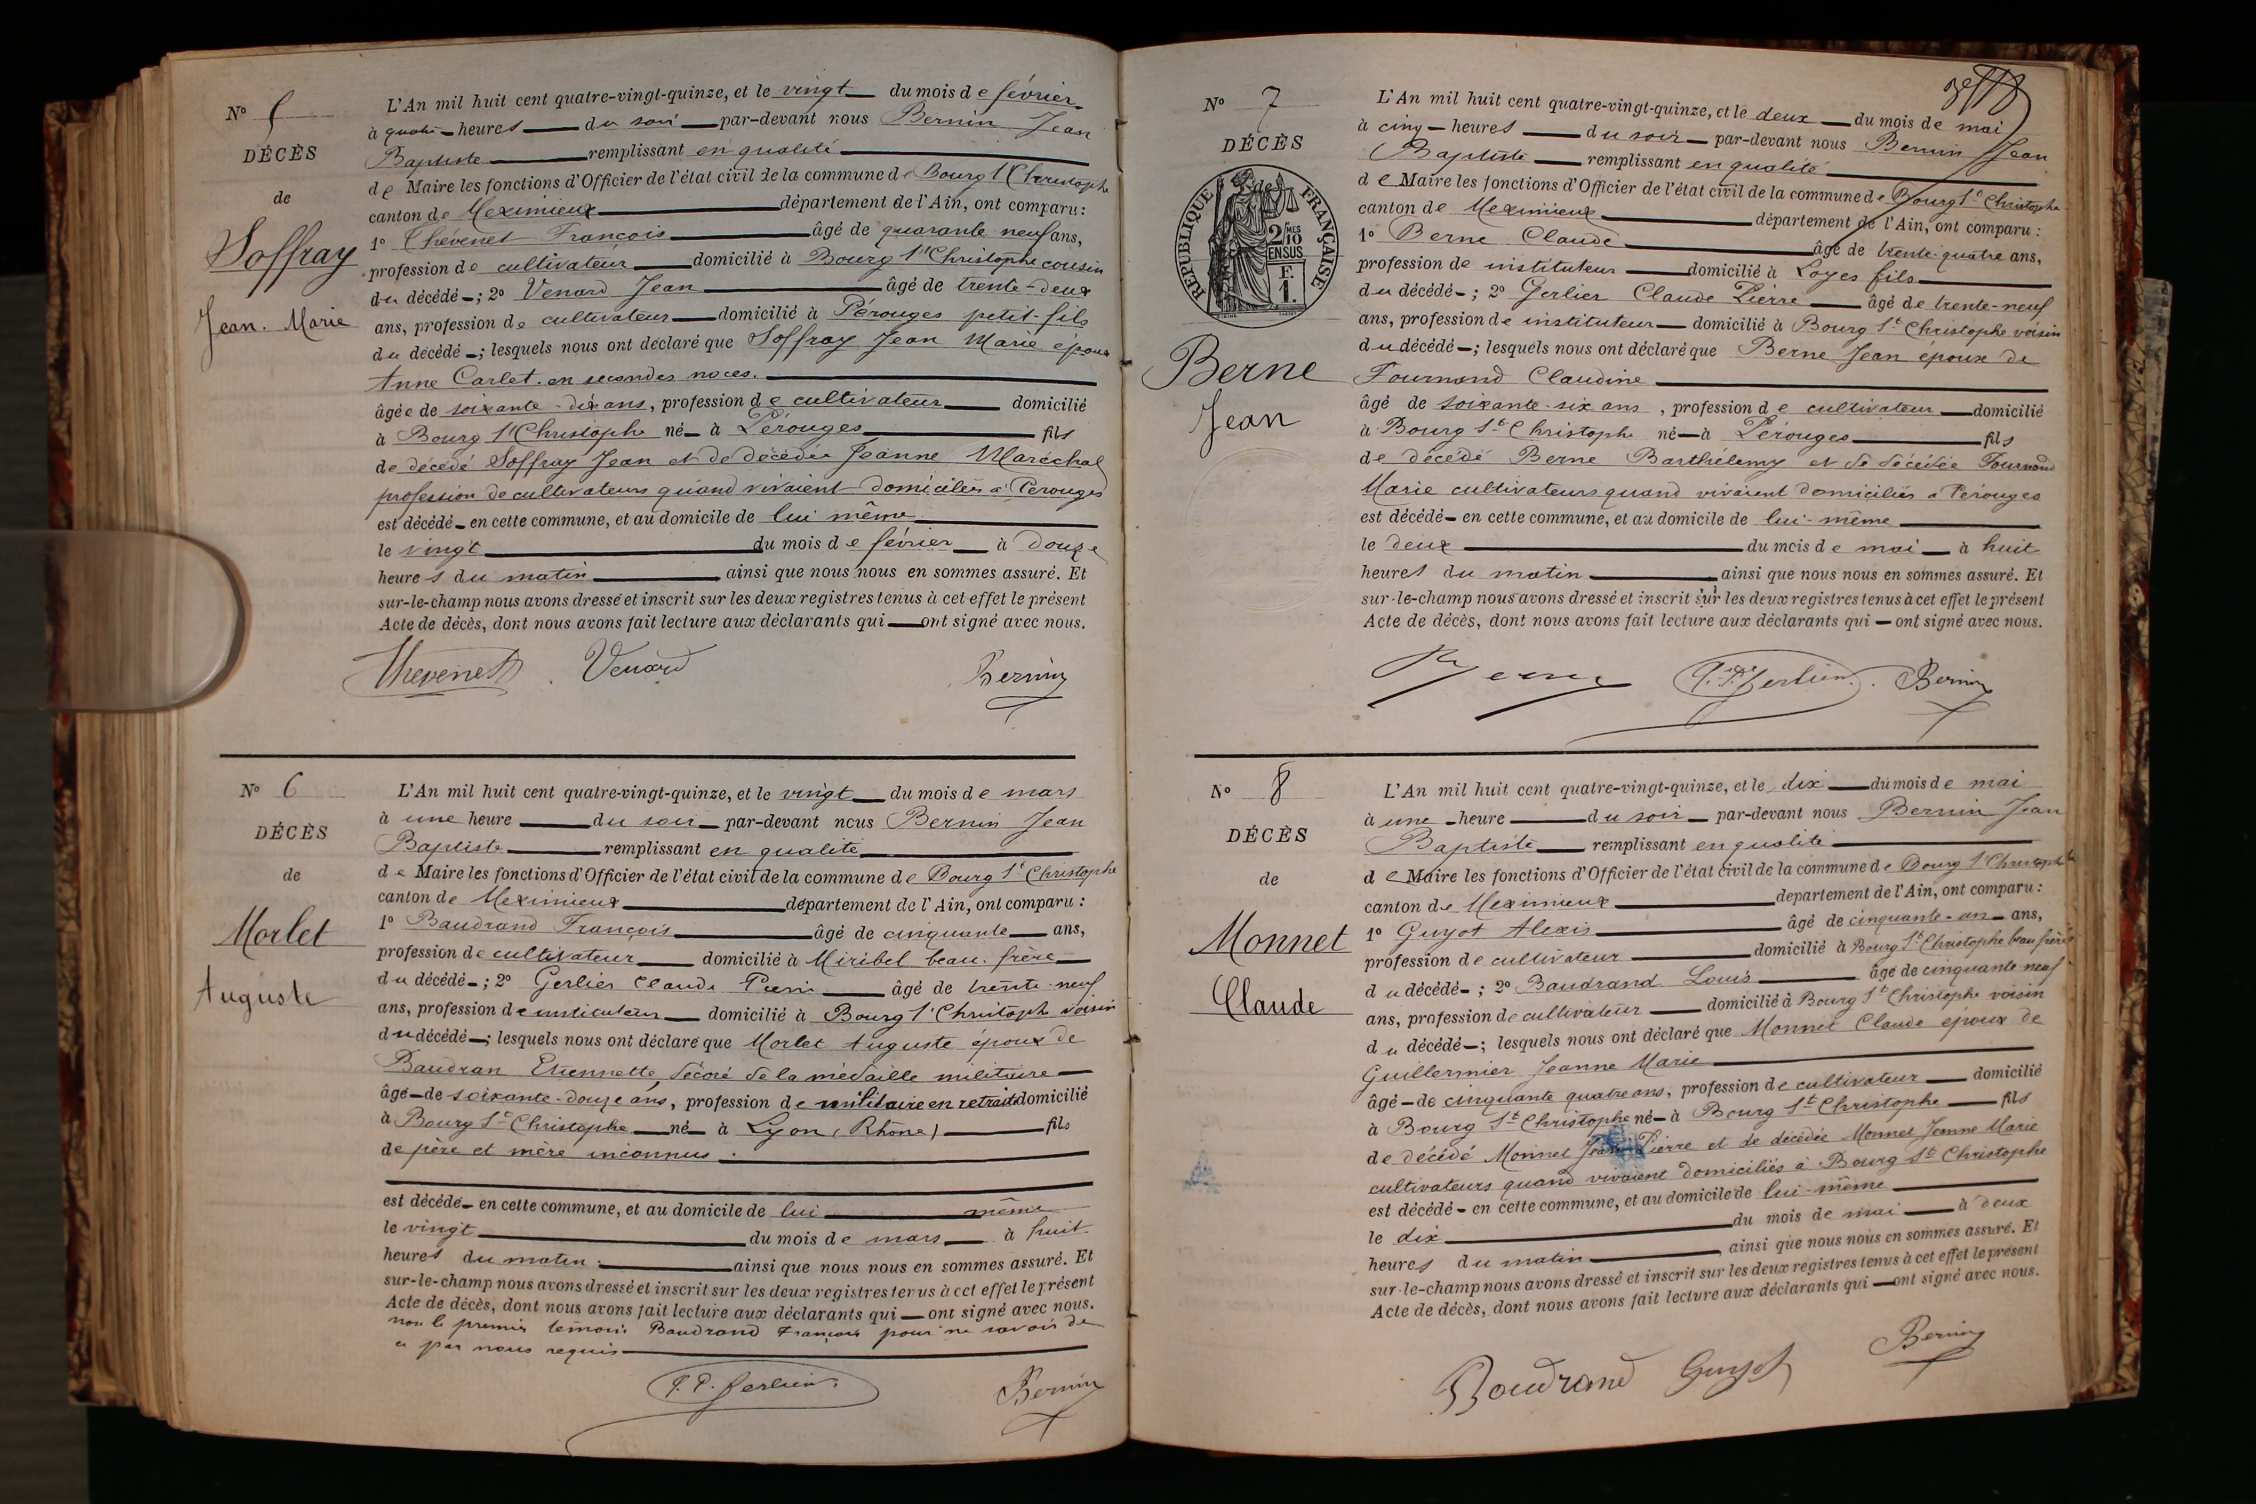 N° 5
DÉCÈS
de
Soffray
Jean-Marie
L'An mil huit cent quatre-vingt-quinze, et le vingt du mois de février
à quatre heures du soir par-devant nous Bernin Jean
Baptiste remplissant en qualité
de Maire les fonctions d'Officier de l'état civil de la commune de Bourg St Christophe
canton de Meximieux département de l'Ain, ont comparu :
1° Thévenet François âgé de quarante neuf ans,
profession de cultivateur domicilié à Bourg St Christophe cousin
du décédé ; 2° Venard Jean âgé de trente-deux
ans, profession de cultivateur domicilié à Pérouges petit-fils
du décédé ; lesquels nous ont déclaré que Soffray Jean Marie époux
Anne Carlet en secondes noces.
âgé de soixante-dix ans, profession de cultivateur domicilié
à Bourg St Christophe né à Pérouges fils
de décédé Soffray Jean et de décédée Jeanne Maréchal
profession de cultivateurs quand vivaient domiciliés à Pérouges
est décédé en cette commune, et au domicile de lui même
le vingt du mois de février à douze
heures du matin ainsi que nous nous en sommes assuré. Et
sur-le-champ nous avons dressé et inscrit sur les deux registres tenus à cet effet le présent
Acte de décès, dont nous avons fait lecture aux déclarants qui ont signé avec nous.
Thevenet Venard Bernin
N° 6
DÉCÈS
de
Morlet
Auguste
L'An mil huit cent quatre-vingt-quinze, et le vingt du mois de mars
à une heure du soir par-devant nous Bernin Jean
Baptiste remplissant en qualité
de Maire les fonctions d'Officier de l'état civil de la commune de Bourg St Christophe
canton de Meximieux département de l'Ain, ont comparu :
1° Baudrand François âgé de cinquante ans,
profession de cultivateur domicilié à Miribel beau-frère
du décédé ; 2° Gerlier Claude Pierre âgé de trente-neuf
ans, profession de instituteur domicilié à Bourg St Christophe voisin
du décédé ; lesquels nous ont déclaré que Morlet Auguste époux de
Baudran Etiennette, décoré de la médaille militaire
âgé de soixante-douze ans, profession de militaire en retraite domicilié
à Bourg St Christophe né à Lyon (Rhône) fils
de père et mère inconnus.
est décédé en cette commune, et au domicile de lui même
le vingt du mois de mars à huit
heures du matin. ainsi que nous nous en sommes assuré. Et
sur-le-champ nous avons dressé et inscrit sur les deux registres tenus à cet effet le présent
Acte de décès, dont nous avons fait lecture aux déclarants qui ont signé avec nous.
non le premier témoin Baudrand François pour ne savoir de
ce par nous requis
C. P. Gerlier Bernin
N° 7
DÉCÈS
de
RÉPUBLIQUE FRANÇAISE
2 MES 10
EN SUS
F.
1.
Berne
Jean
L'An mil huit cent quatre-vingt-quinze, et le deux du mois de mai
à cinq heures du soir par-devant nous Bernin Jean
Baptiste remplissant en qualité
de Maire les fonctions d'Officier de l'état civil de la commune de Bourg St Christophe
canton de Meximieux département de l'Ain, ont comparu :
1° Berne Claude âgé de trente-quatre ans,
profession de instituteur domicilié à Loyes fils
du décédé ; 2° Gerlier Claude Pierre âgé de trente-neuf
ans, profession de instituteur domicilié à Bourg St Christophe voisin
du décédé ; lesquels nous ont déclaré que Berne Jean époux de
Fournond Claudine
âgé de soixante-six ans, profession de cultivateur domicilié
à Bourg St Christophe né à Pérouges fils
de décédé Berne Barthélemy et de décédée Fournond
Marie cultivateurs quand vivaient domiciliés à Pérouges
est décédé en cette commune, et au domicile de lui-même
le deux du mois de mai à huit
heures du matin ainsi que nous nous en sommes assuré. Et
sur-le-champ nous avons dressé et inscrit sur les deux registres tenus à cet effet le présent
Acte de décès, dont nous avons fait lecture aux déclarants qui ont signé avec nous.
Berne C. P. Gerlier Bernin
N° 8
DÉCÈS
de
Monnet
Claude
L'An mil huit cent quatre-vingt-quinze, et le dix du mois de mai
à une heure du soir par-devant nous Bernin Jean
Baptiste remplissant en qualité
de Maire les fonctions d'Officier de l'état civil de la commune de Bourg St Christophe
canton de Meximieux département de l'Ain, ont comparu :
1° Guyot Alexis âgé de cinquante-un ans,
profession de cultivateur domicilié à Bourg St Christophe beau frère
du décédé ; 2° Baudrand Louis âgé de cinquante neuf
ans, profession de cultivateur domicilié à Bourg St Christophe voisin
du décédé ; lesquels nous ont déclaré que Monnet Claude époux de
Guillermier Jeanne Marie
âgé de cinquante quatre ans, profession de cultivateur domicilié
à Bourg St Christophe né à Bourg St Christophe fils
de décédé Monnet Pierre et de décédée Monnet Jeanne Marie
cultivateurs quand vivaient domiciliés à Bourg St Christophe
est décédé en cette commune, et au domicile de lui-même
le dix du mois de mai à deux
heures du matin ainsi que nous nous en sommes assuré. Et
sur-le-champ nous avons dressé et inscrit sur les deux registres tenus à cet effet le présent
Acte de décès, dont nous avons fait lecture aux déclarants qui ont signé avec nous.
Baudrand Guyot Bernin